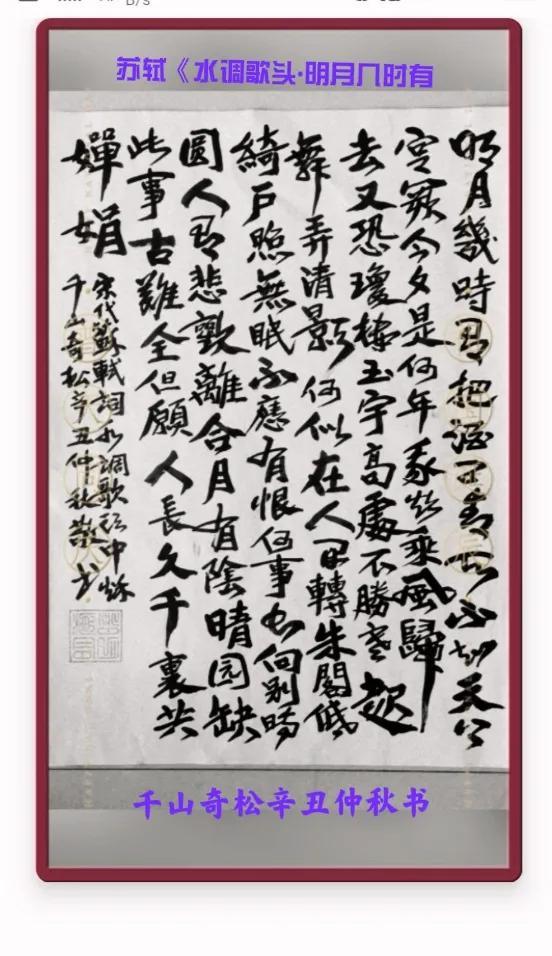 B/s
苏轼《水调歌头·明月几时有
明月幾時有把酒问青天不知天上
宫阙今夕是何年我欲乘風歸
去又恐瓊樓玉宇高處不勝寒起
舞弄清影何似在人间轉朱閣低
綺戶照無眠不應有恨何事长向别時
圓人有悲歡離合月有陰晴园缺
此事古難全但願人長久千裏共
嬋娟
宋代蘇軾詞水調歌头中秋
千山奇松辛丑仲秋敬书
千山奇松辛丑仲秋书